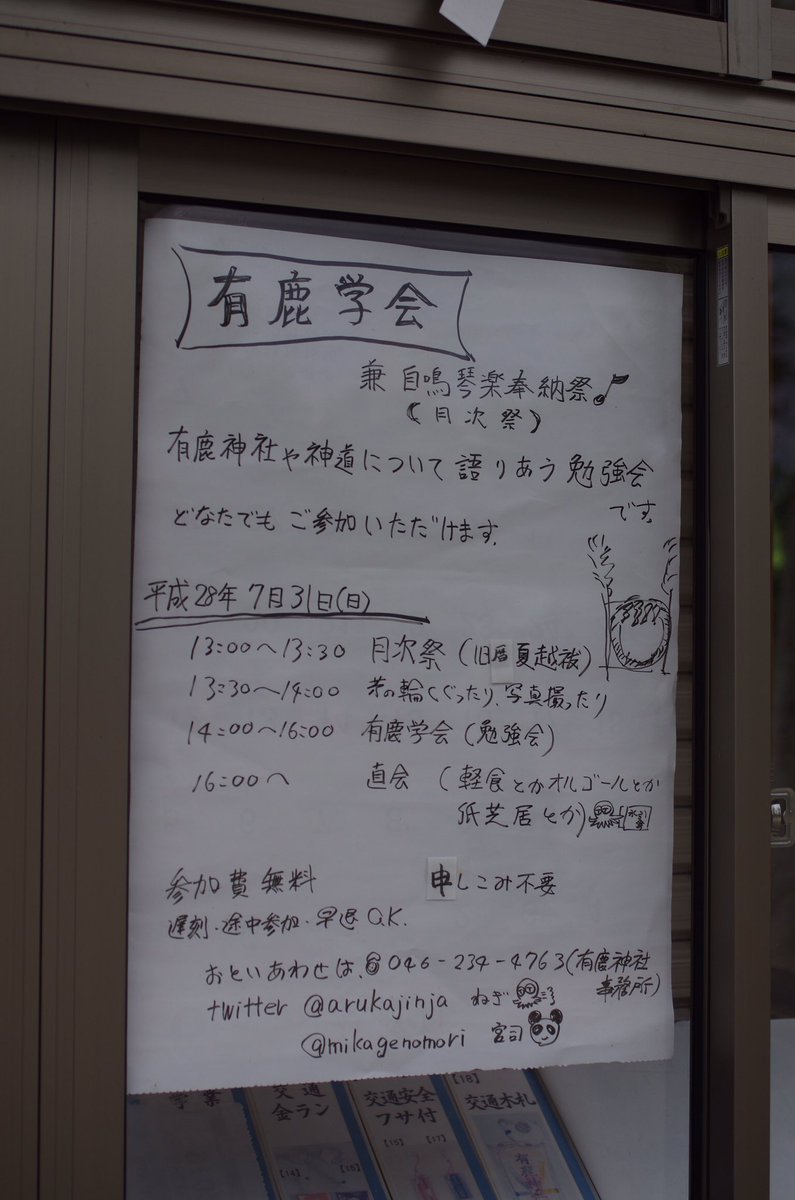 有鹿学会
兼 自鳴琴楽奉納祭♪
（月次祭）
有鹿神社や神道について語りあう勉強会
です。
どなたでもご参加いただけます。
平成28年7月31日(日)
13:00〜13:30 月次祭（旧暦夏越祓）
13:30〜14:00 茅の輪くぐったり、写真撮ったり
14:00〜16:00 有鹿学会（勉強会）
16:00〜 直会（軽食とかオルゴールとか
紙芝居とか）
参加費無料 申しこみ不要
遅刻・途中参加・早退O.K.
おといあわせは、046-234-4763(有鹿神社
事務所)
twitter @arukajinja ねぎ
@mikagenomori 宮司
学業
交通
金ラン
[14]
交通安全
フサ付
[15] [17]
[18]
交通木札